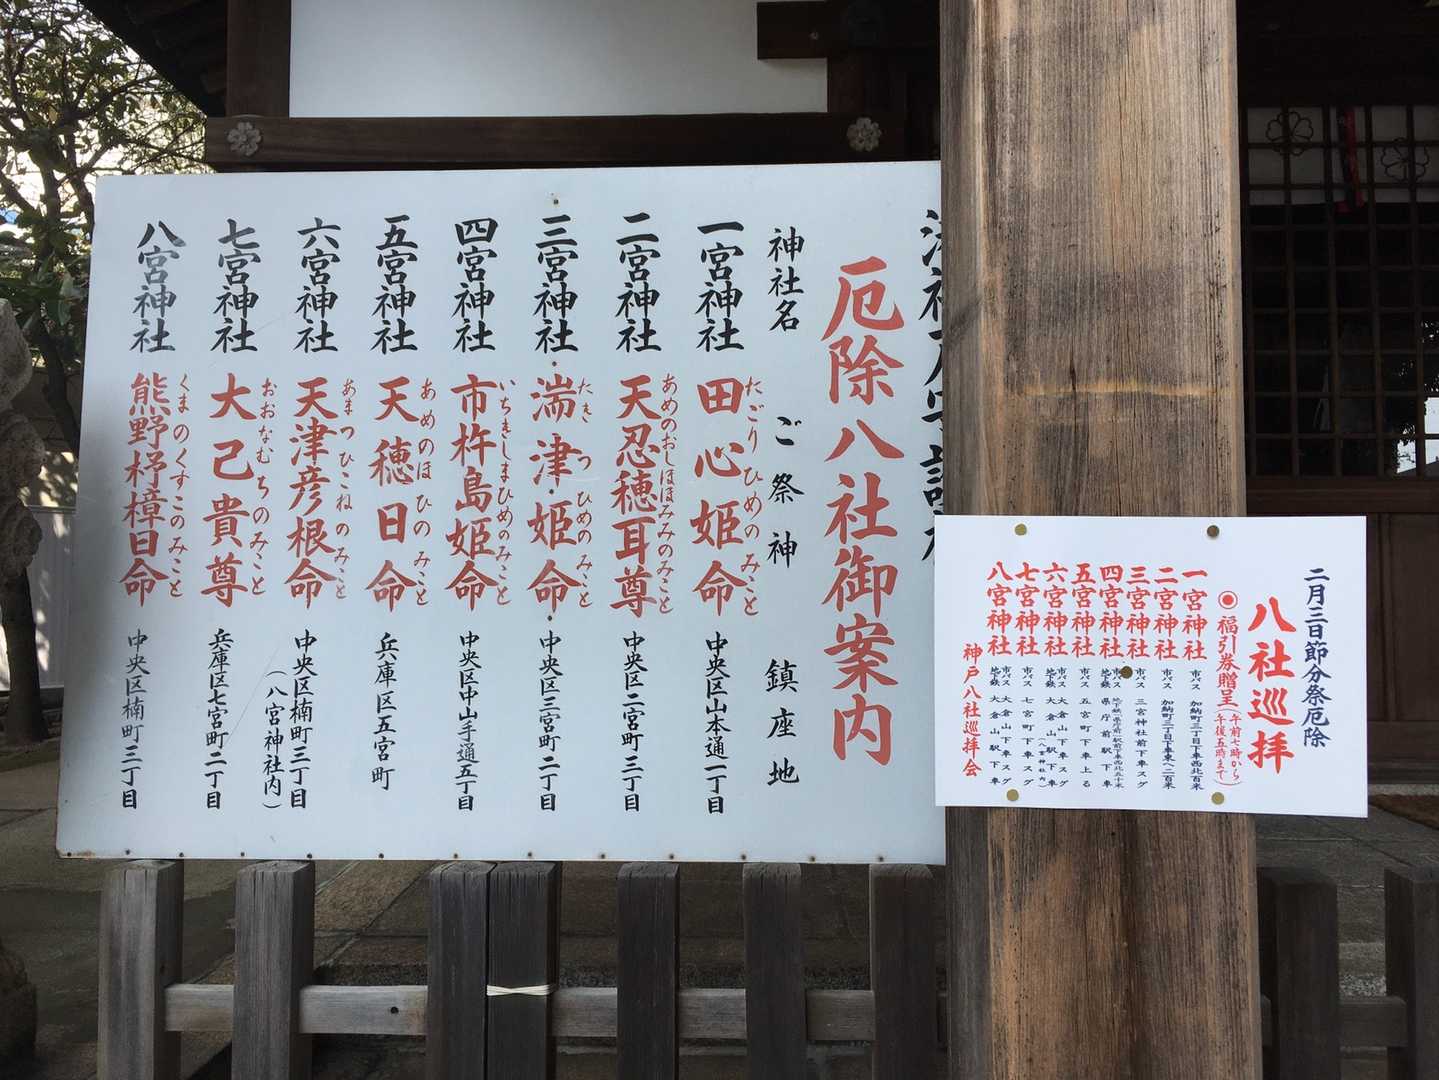 厄除八社御案内
神社名 ご祭神 鎮座地
一宮神社 田心姫命 たごりひめのみこと 中央区山本通一丁目
二宮神社 天忍穂耳尊 あめのおしほほみみのみこと 中央区二宮町三丁目
三宮神社 湍津姫命 たきつひめのみこと 中央区三宮町二丁目
四宮神社 市杵島姫命 いちきしまひめのみこと 中央区中山手通五丁目
五宮神社 天穂日命 あめのほひのみこと 兵庫区五宮町
六宮神社 天津彦根命 あまつひこねのみこと 中央区楠町三丁目
(八宮神社内)
七宮神社 大己貴尊 おおなむちのみこと 兵庫区七宮町二丁目
八宮神社 熊野杼樟日命 くまのくすこのみこと 中央区楠町三丁目
二月三日節分祭厄除
八社巡拝
◉福引券贈呈(午前七時から午後五時まで)
一宮神社 市バス 加納町三丁目下車西北百米
二宮神社 市バス 加納町三丁目下車東へ二百米
三宮神社 市バス 三宮神社前下車スグ
四宮神社 市バス 地下鉄県庁前駅下車西北五十米
地下鉄 県庁前駅下車
五宮神社 市バス 五宮町下車上る
六宮神社 市バス 大倉山下車スグ
地下鉄 大倉山駅下車
(八宮神社内)
七宮神社 市バス 七宮町下車スグ
八宮神社 市バス 大倉山下車スグ
地下鉄 大倉山駅下車
神戸八社巡拝会